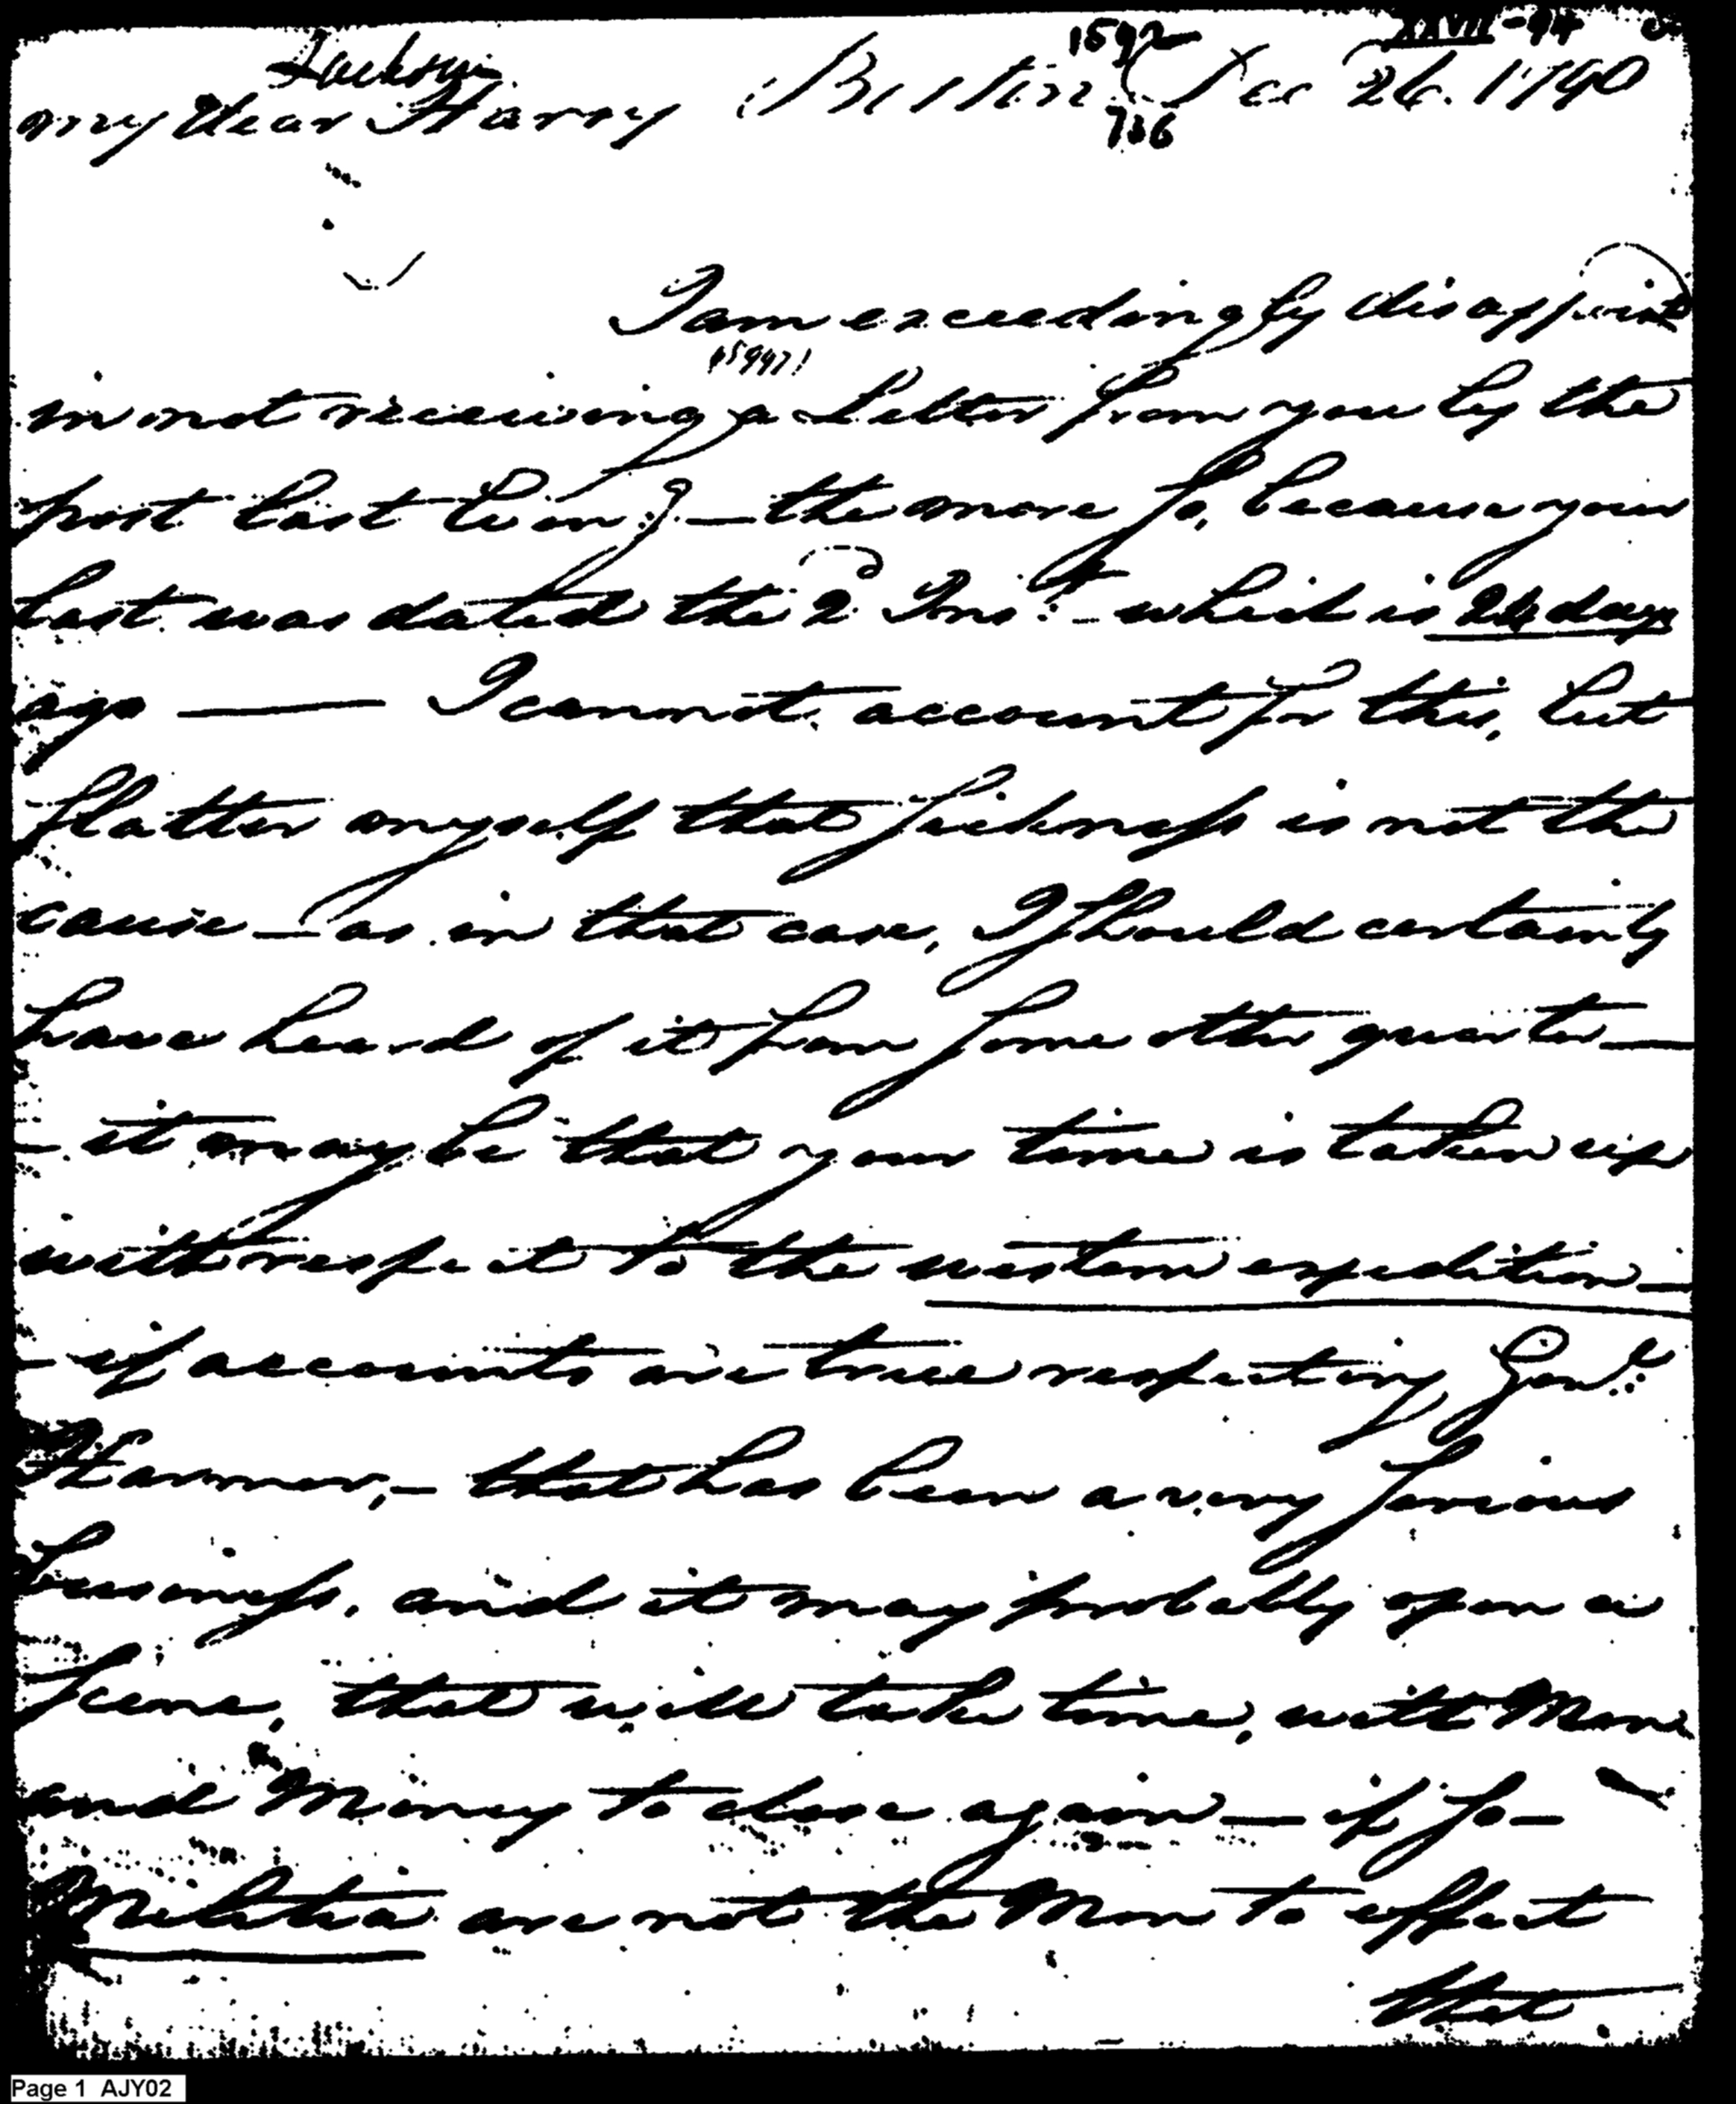 1592 XXVII-94
Jackson
my dear Harry Boston Dec 26. 1790
736
I am exceedingly disappoint
in not receiving a Letter from you by the
post last Even:g — the more so, because your
last was dated the 2d Inst: - which is 24 days
ago — I cannot account for this, but
flatter myself that sickness is not the
cause — as in that case, I should certainly
have heard of it from some other quarter —
— it may be that your time is taken up
with respect to the western expedition —
— if accounts are true respecting Genl:
Harmer, — that has been a very serious
business, and it may probably open a
scene, that will take time, with Men
and Money to close again — if so —
Militia are not the Men to effect
that
Page 1 AJY02